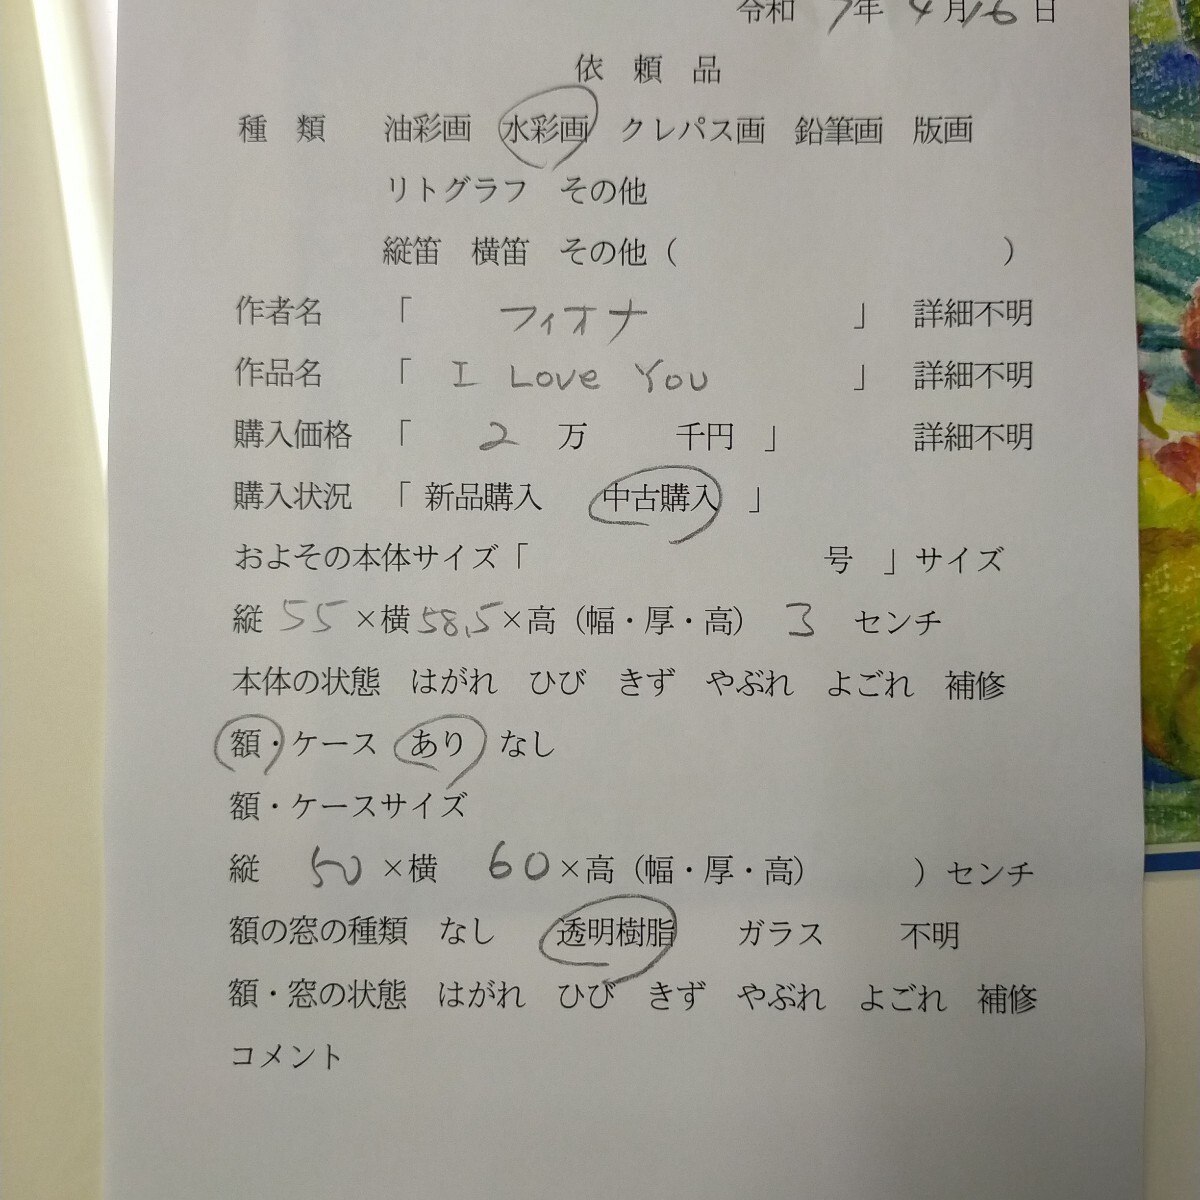 令和 7年 4月16日
依 頼 品
種 類 油彩画 水彩画 クレパス画 鉛筆画 版画
リトグラフ その他
縦笛 横笛 その他（ ）
作者名 「 フィオナ 」 詳細不明
作品名 「 I Love You 」 詳細不明
購入価格 「 2 万 千円 」 詳細不明
購入状況 「 新品購入 中古購入 」
およその本体サイズ「 号 」サイズ
縦 55 ×横 58.5 ×高（幅・厚・高） 3 センチ
本体の状態 はがれ ひび きず やぶれ よごれ 補修
額・ケース あり なし
額・ケースサイズ
縦 50 ×横 60 ×高（幅・厚・高） ）センチ
額の窓の種類 なし 透明樹脂 ガラス 不明
額・窓の状態 はがれ ひび きず やぶれ よごれ 補修
コメント